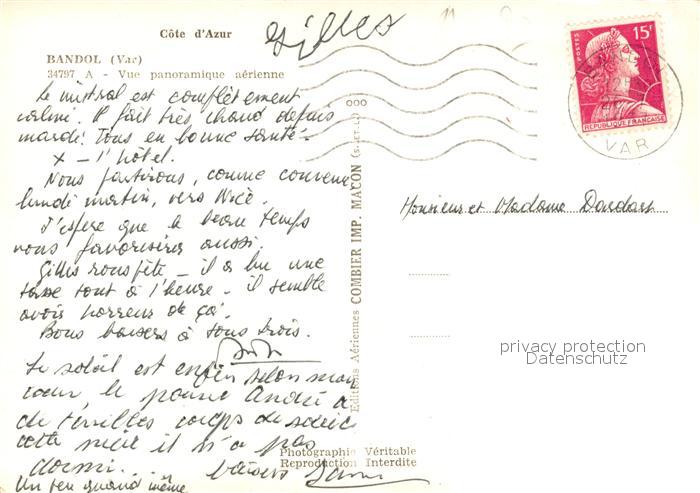 Côte d'Azur
Gilles
BANDOL (Var)
34797 A - Vue panoramique aérienne
Le mistral est complètement
calmé. Il fait très chaud depuis
mardi. Tous en bonne santé.
X - l'hôtel.
Nous partirons, comme convenu
lundi matin, vers Nice.
J'espère que le beau temps
vous favorisera aussi.
Gilles rouspète - il a bu une
tasse tout à l'heure - il semble
avoir horreur de ça.
Bons baisers à tous trois.
Le soleil est enfin selon mon
cœur, le pauvre André a
de terribles coups de soleil
cette nuit il n'a pas
dormi... baisers
Un peu quand même
Editions Aériennes COMBIER IMP. MACON
Photographie Véritable
Reproduction Interdite
POSTES
15F
REPUBLIQUE FRANÇAISE
VAR
Monsieur et Madame
privacy protection
Datenschutz